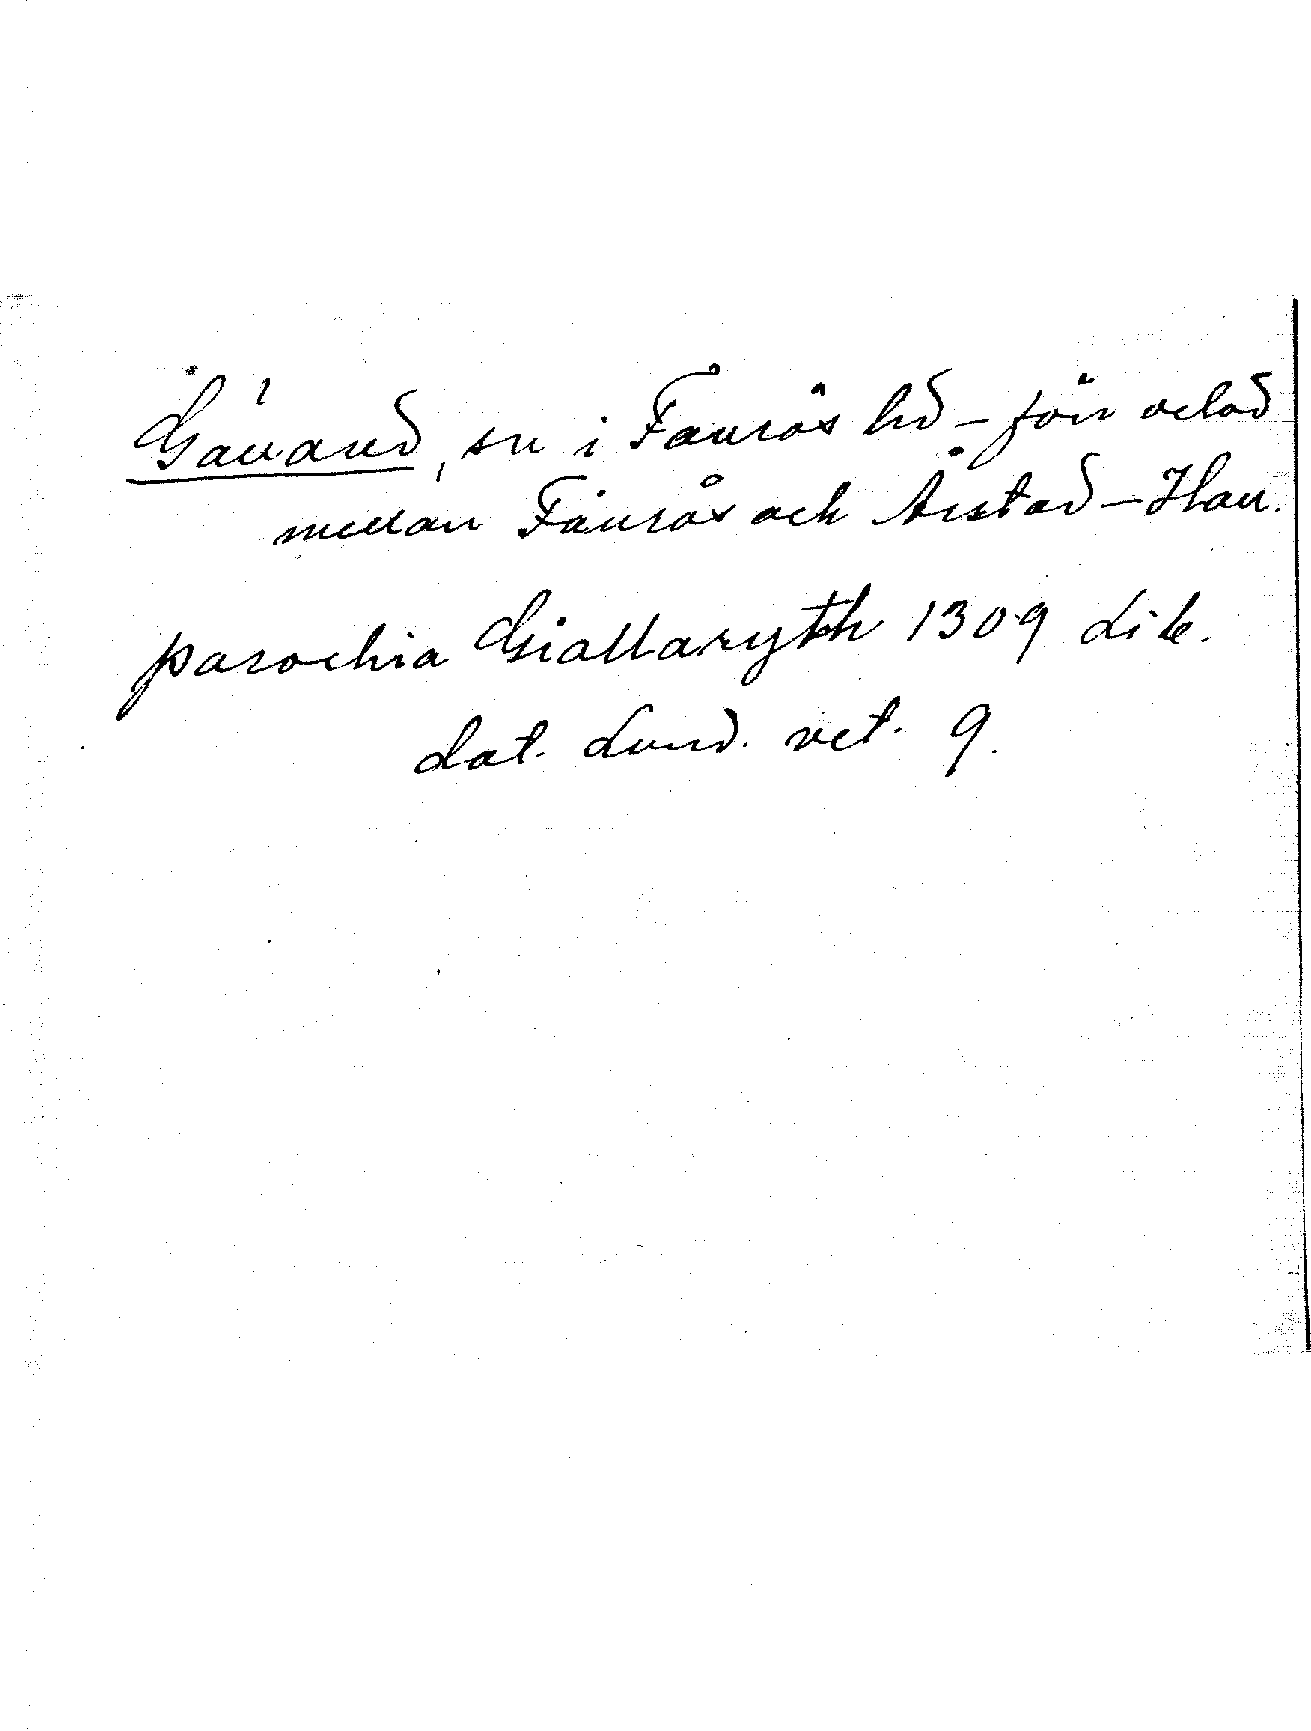 Gällared, sn i Faurås hd – förr delad
mellan Faurås och Årstad – Hall.
parochia Giallaryth 1309 Lib.
dat. Lund. vet. 9.